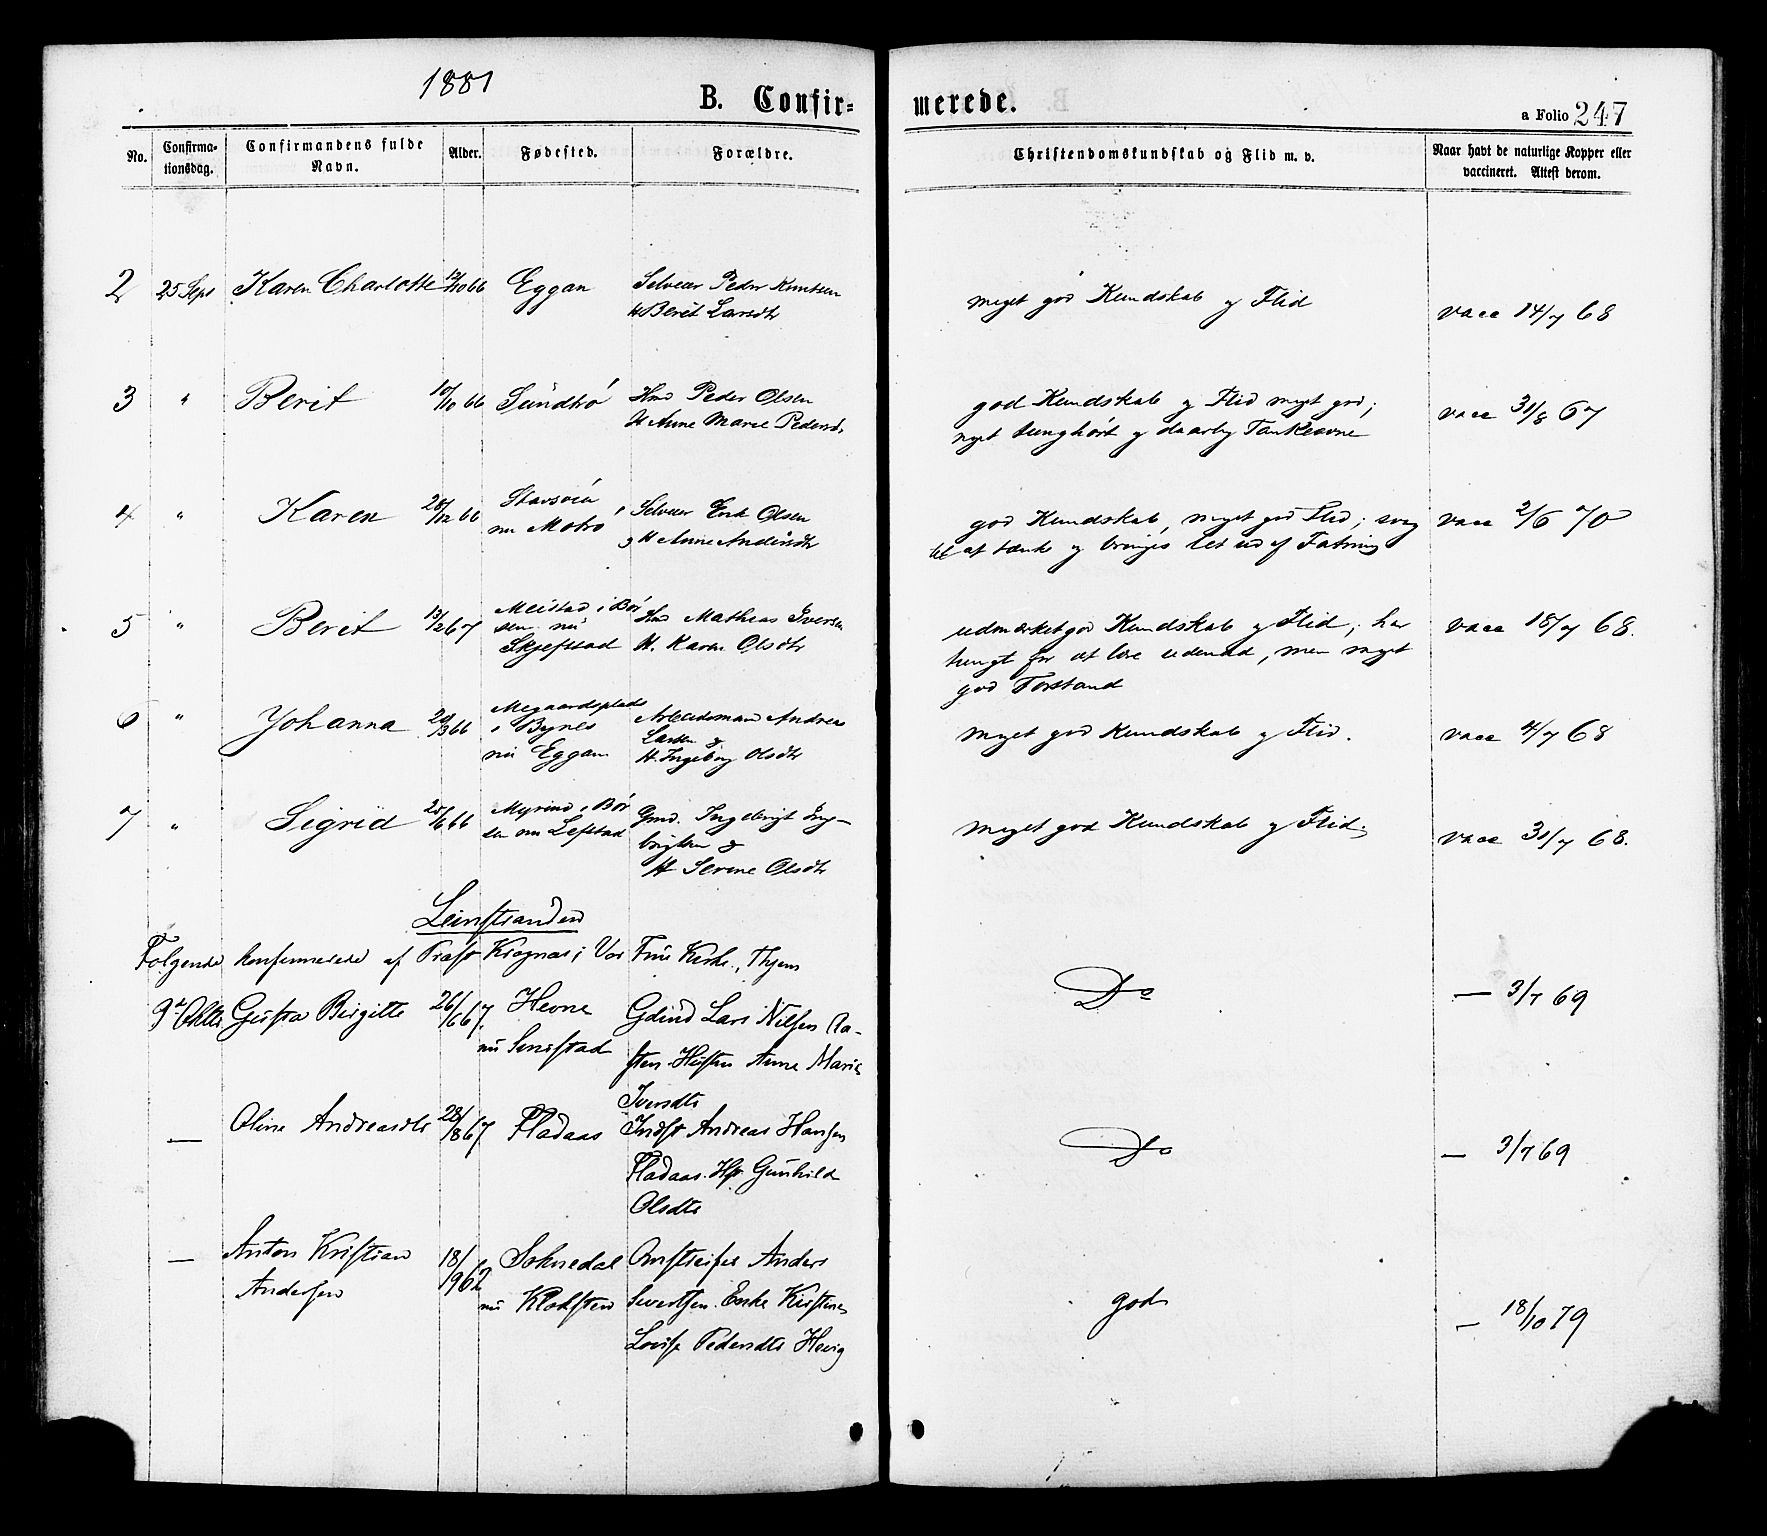 1881
B. Confir-
merede.
a Folio 247
No.
Confirma-
tionsdag.
Confirmandens fulde
Navn.
Alder.
Fødested.
Forældre.
Christendomskundskab og Flid m. v.
Naar havt de naturlige Kopper eller
vaccineret. Attest derom.
2 25 Sept Karen Charlotte 12/10 66 Eggan Selveier Peder Knutsen meget god Kundskab og Flid vacc 14/7 68
H Berit Larsdtr
3 " Berit 10/10 66 Sundtrø Hmd Peder Olsen god Kundskab og Flid meget god; vacc 31/8 67
H Anne Marie Pedersdr meget tunghørt og daarlig Tankeevne
4 " Karen 28/12 66 Stavsøien Selveier Erik Olsen god Kundskab, meget god Flid; svag vacc 2/6 70
nu Motrø og H Anne Andersdtr til at tænke og bringes let ud af Fatning
5 " Berit 13/2 67 Meistad i Bør Hmd Mathias Iversen udmærket god Kundskab og Flid; har vacc 18/7 68.
sen nu
Skjefstad H. Karen Olsdtr tungt for at lære udenad, men meget
god Forstand
6 " Johanna 20/3 66 Megaardsplads Arbeidsmand Andreas meget god Kundskab og Flid. vacc 4/7 68
i Bynes Larsen &
nu Eggan H. Ingeborg Olsdtr
7 " Sigrid 25/6 66 Myrmo i Bør Gmd. Ingebrigt Ing- meget god Kundskab og Flid. vacc 31/7 68.
sen nu Lefstad brigtsen &
H Serine Olsdtr
Leinstranden
Følgende konfirmerede af Præst Krognæs i Vor Frue Kirke, Thjem
9de Oktbr. Gjestra Birgitte 26/6 67. Hevne Gdmd Lars Nilsen Do — 3/7 69
nu Sunstad sten. Hustru Anne Marie
Iversdtr
— Oline Andreasdtr 28/8 67 Fladaas Indst Andreas Hansen Do — 3/7 69
Fladaas. Hst Gunhild
Olsdtr
— Anton Kristian 18/ Soknedal Anders god — 18/10 79
Andersen nu Klohsten Sivertsen. Enke Kirstine
Lovise Pedersdtr Hevig